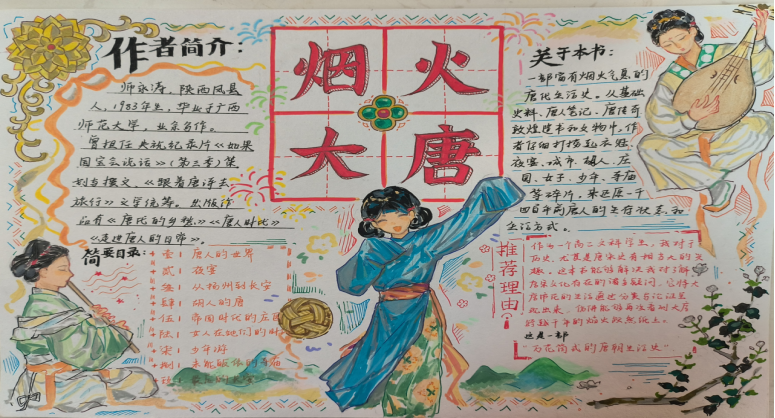 烟火
大唐
作者简介:
师永涛,陕西凤县
人,1983年生,毕业于广西
师范大学,业余写作。
曾担任央视纪录片《如果
国宝会说话》(第三季)策
划与撰文,《跟着唐诗去
旅行》文学统筹。出版作
品有《唐代的乡愁》《唐人时代》
《走进唐人的日常》。
关于本书:
一部富有烟火气息的
唐代生活史。从基础
史料、唐人笔记、唐传奇
敦煌遗书和文物中,作
者仔细打捞起衣冠、
夜宴、城市、胡人、庄
园、女子、少年、寺庙
等碎片,来还原一千
四百年前唐人的生存状态和
生活方式。
简要目录:
壹:唐人的世界
贰:夜宴
叁:从扬州到长安
肆:胡人的唐
伍:帝国时代的庄园
陆:女人在她们的时
柒:少年游
推荐理由:
作为一个高二文科学生,我对于
历史,尤其是唐宋史有相当大的兴
趣。这本书能够解决我对于解
唐宋文化存在的诸多疑问。它将大
唐市花的生活通过分类
现出来,仿佛能够
的数千年的烟火跃然纸上。
这是一部
“百花筒式的唐朝生活史”